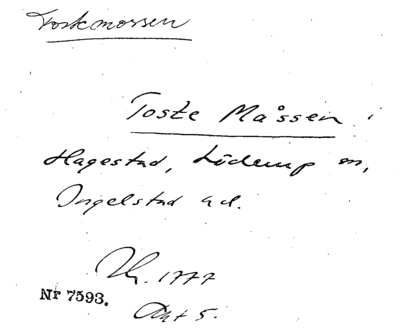 Torkmossen
Toste Måssen i
Hagestad, Löderup sn,
Ingelstad hd.
Th. 1777
Nr 7593.
Akt 5.